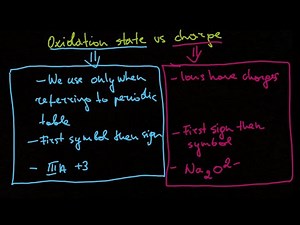 Oxidation state vs charge
- We use only when
referring to periodic
table
- First symbol then sign
- IIIA +3
- Ions have charges
- First sign then
symbol
- Na2O2-